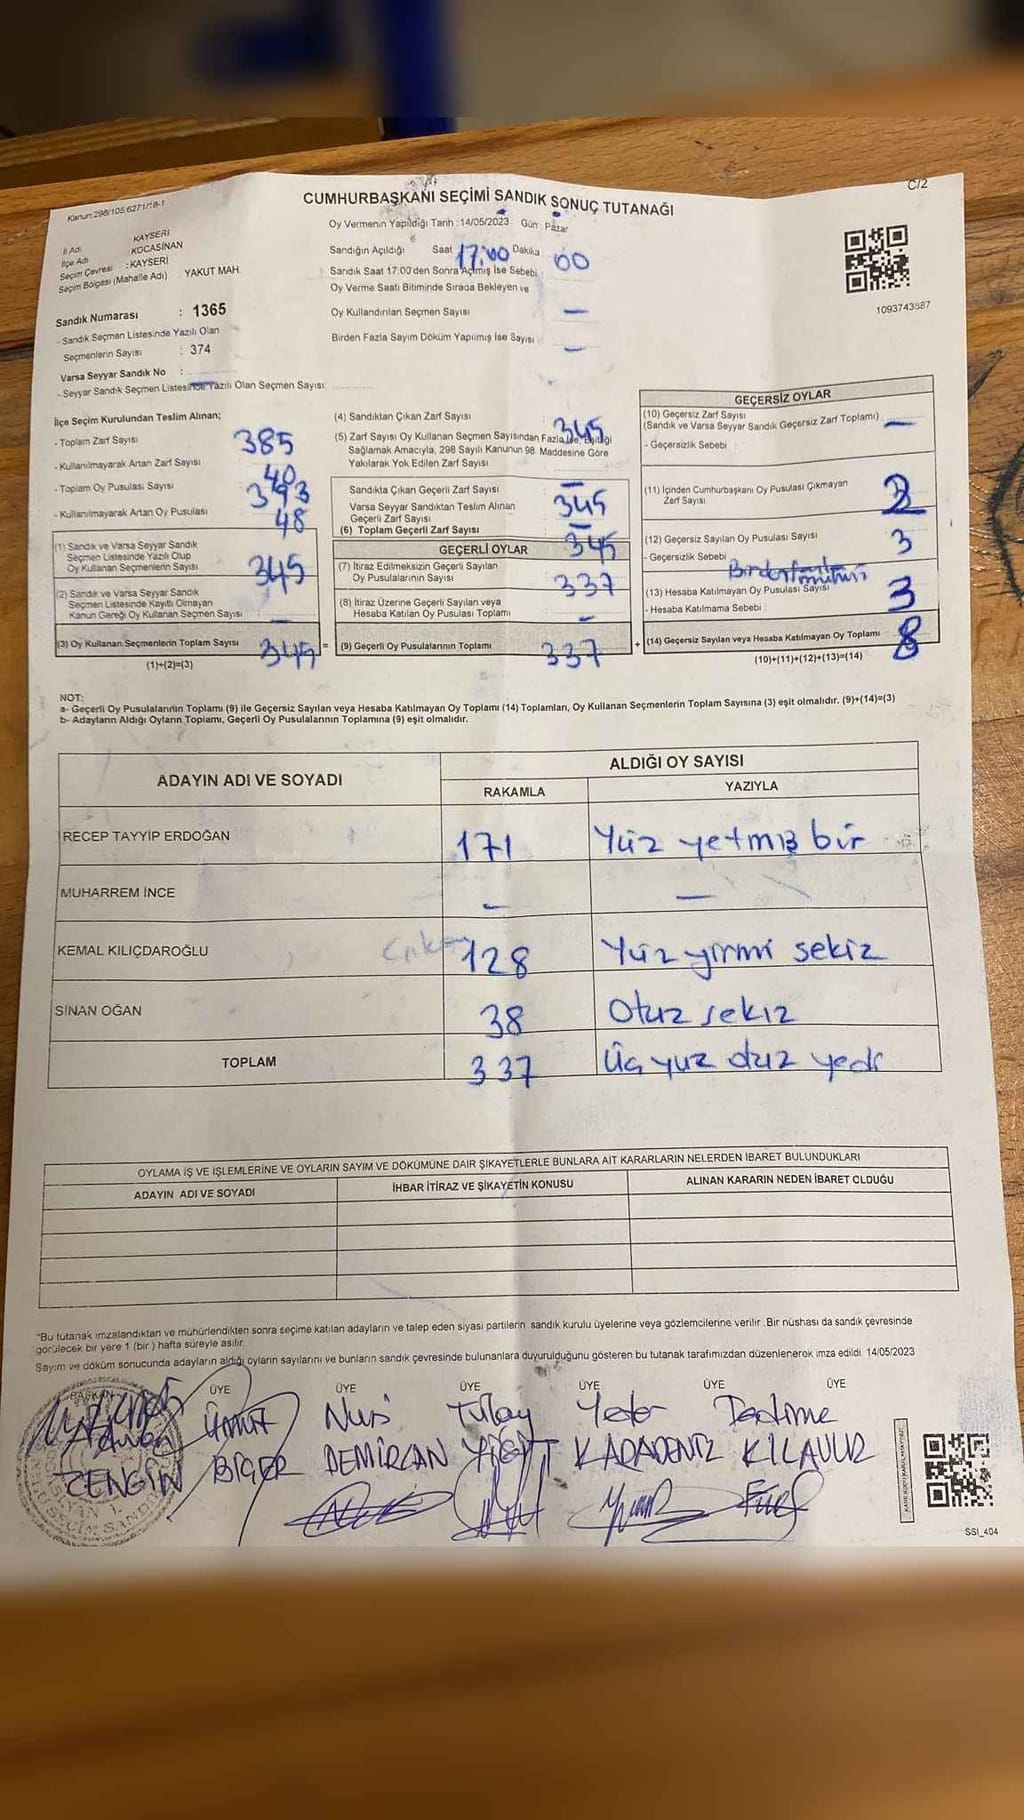 C/2
Kanun:298/105;6271/18-1
CUMHURBAŞKANI SEÇİMİ SANDIK SONUÇ TUTANAĞI
Oy Vermenin Yapıldığı Tarih :14/05/2023 Gün : Pazar
İl Adı KAYSERİ
İlçe Adı KOCASİNAN
Seçim Çevresi : KAYSERİ
Seçim Bölgesi (Mahalle Adı) YAKUT MAH.
Sandık Numarası : 1365
- Sandık Seçmen Listesinde Yazılı Olan
Seçmenlerin Sayısı : 374
Varsa Seyyar Sandık No :
- Seyyar Sandık Seçmen Listesinde Yazılı Olan Seçmen Sayısı:
Sandığın Açıldığı Saat 17:00 Dakika 00
Sandık Saat 17:00'den Sonra Açılmış İse Sebebi
Oy Verme Saati Bitiminde Sırada Bekleyen ve
Oy Kullandırılan Seçmen Sayısı —
Birden Fazla Sayım Döküm Yapılmış İse Sayısı —
1093743887
İlçe Seçim Kurulundan Teslim Alınan;
- Toplam Zarf Sayısı 385
- Kullanılmayarak Artan Zarf Sayısı 40
- Toplam Oy Pusulası Sayısı 393
- Kullanılmayarak Artan Oy Pusulası 48
(1) Sandık ve Varsa Seyyar Sandık
Seçmen Listesinde Yazılı Olup
Oy Kullanan Seçmenlerin Sayısı 345
(2) Sandık ve Varsa Seyyar Sandık
Seçmen Listesinde Kayıtlı Olmayan
Kanun Gereği Oy Kullanan Seçmen Sayısı —
(3) Oy Kullanan Seçmenlerin Toplam Sayısı 345 =
(1)+(2)=(3)
(4) Sandıktan Çıkan Zarf Sayısı : 345
(5) Zarf Sayısı Oy Kullanan Seçmen Sayısından Fazla İse, Eşitliği
Sağlamak Amacıyla, 298 Sayılı Kanunun 98. Maddesine Göre
Yakılarak Yok Edilen Zarf Sayısı —
Sandıkta Çıkan Geçerli Zarf Sayısı 345
Varsa Seyyar Sandıktan Teslim Alınan
Geçerli Zarf Sayısı —
(6) Toplam Geçerli Zarf Sayısı 345
GEÇERLİ OYLAR
(7) İtiraz Edilmeksizin Geçerli Sayılan
Oy Pusulalarının Sayısı 337
(8) İtiraz Üzerine Geçerli Sayılan veya
Hesaba Katılan Oy Pusulası Toplamı —
(9) Geçerli Oy Pusulalarının Toplamı 337 +
GEÇERSİZ OYLAR
(10) Geçersiz Zarf Sayısı
(Sandık ve Varsa Seyyar Sandık Geçersiz Zarf Toplamı) —
- Geçersizlik Sebebi :
(11) İçinden Cumhurbaşkanı Oy Pusulası Çıkmayan
Zarf Sayısı 2
(12) Geçersiz Sayılan Oy Pusulası Sayısı 3
- Geçersizlik Sebebi :
(13) Hesaba Katılmayan Oy Pusulası Sayısı 3
- Hesaba Katılmama Sebebi :
(14) Geçersiz Sayılan veya Hesaba Katılmayan Oy Toplamı : 8
(10)+(11)+(12)+(13)=(14)
NOT:
a- Geçerli Oy Pusulalarının Toplamı (9) ile Geçersiz Sayılan veya Hesaba Katılmayan Oy Toplamı (14) Toplamları, Oy Kullanan Seçmenlerin Toplam Sayısına (3) eşit olmalıdır. (9)+(14)=(3)
b- Adayların Aldığı Oyların Toplamı, Geçerli Oy Pusulalarının Toplamına (9) eşit olmalıdır.
ADAYIN ADI VE SOYADI ALDIĞI OY SAYISI
RAKAMLA YAZIYLA
RECEP TAYYİP ERDOĞAN 171 Yüz yetmiş bir
MUHARREM İNCE — —
KEMAL KILIÇDAROĞLU 128 Yüz yirmi sekiz
SİNAN OĞAN 38 Otuz sekiz
TOPLAM 337 Üç yuz otuz yedi
OYLAMA İŞ VE İŞLEMLERİNE VE OYLARIN SAYIM VE DÖKÜMÜNE DAİR ŞİKAYETLERLE BUNLARA AİT KARARLARIN NELERDEN İBARET BULUNDUKLARI
ADAYIN ADI VE SOYADI İHBAR İTİRAZ VE ŞİKAYETİN KONUSU ALINAN KARARIN NEDEN İBARET OLDUĞU
*Bu tutanak imzalandıktan ve mühürlendikten sonra seçime katılan adayların ve talep eden siyasi partilerin sandık kurulu üyelerine veya gözlemcilerine verilir .Bir nüshası da sandık çevresinde
görülecek bir yere 1 (bir ) hafta süreyle asılır.
Sayım ve döküm sonucunda adayların aldığı oyların sayılarını ve bunların sandık çevresinde bulunanlara duyurulduğunu gösteren bu tutanak tarafımızdan düzenlenerek imza edildi. 14/05/2023
BAŞKAN ÜYE ÜYE ÜYE ÜYE ÜYE ÜYE
Ümüt Nuri Tülay Yeter
ZENGİN BİÇER DEMİRCAN YİĞİT KARADENİZ KILAVUZ
SSI_404